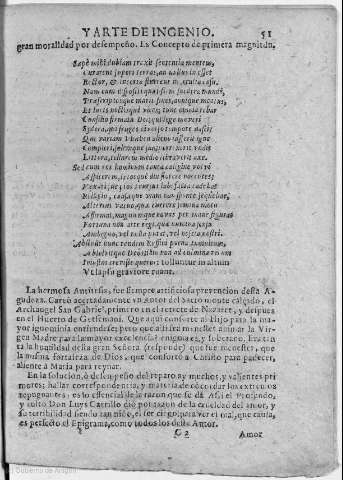 Y ARTE DE INGENIO. 51
gran moralidad por desempeño. Es Concepto de primera magnitud.
Sæpè mihi dubiam traxit sententia mentem,
Curarent superi terras, an nullus inesset
Rector, & incerto fluerent
Nam cum dispositi quæsissem fœdera mundi,
Præscriptosque maris fines, annique meatus,
Et lucis noctisque vices; tunc omnia rebar
Consilio firmata Dei, qui lege moveri
Sydera, qui fruges diverso tempore nasci
Qui variam Phœben alieno iusserit igne
Compleri, Solemque suo; porrexerit
Littora, tellurem medio libraverit axe.
Sed cum res hominum tanta caligine volvi
Aspicerem, lætosque diu florere nocentes
Vexarique pios: rursus labefacta cadebat
Religio, causæque viam non sponte sequebar,
Alterius vacuo quæ currere semina motu
Affirmat, magnumque novas per inane figuras
Fortuna non arte regi, quæ numina sensu
Ambiguo, vel nulla putat, vel nescia nostri.
Abstulit hunc tandem Rufini pœna tumultum,
Absolvitque Deos: iam non ad culmina rerum
Iniustos crevisse queror: tolluntur in altum
Ut lapsu graviore ruant.
La hermosa Antitesis, fue siempre artificiosa prevencion desta Agudeza.
Careó acertadamente un Autor del Sacro monte calçado, el
Archangel San Gabriel, primero en el retrete de Nazaret, y despues
en el Huerto de Getsemani. Que aqui conforte al Hijo para la mayor
ignominia entiendese; pero que allá sea menester animar la Virgen
Madre para la mayor excelencia; enigma es, y soberano. Era tanta
la humildad desta gran Señora (responde) que fue menester, que
la misma fortaleza de Dios, que confortó a Christo para padecer,
aliente à Maria para reynar.
En la solucion, ò desempeño del reparo ay muchos, y valientes primores;
hallar correspondencia, y materia de concordar los extremos
repugnantes; es essencial de la raiz que se dá. Assi el Profundo,
y culto Don Luys Carrillo dió por razon de la crueldad del amor, y
su terribilidad siendo tan niño, el ser ciego para ver el mal, que causa,
es perfecto el Epigrama, como todos los deste Autor.
G 2 Amor
Gobierno de Aragón